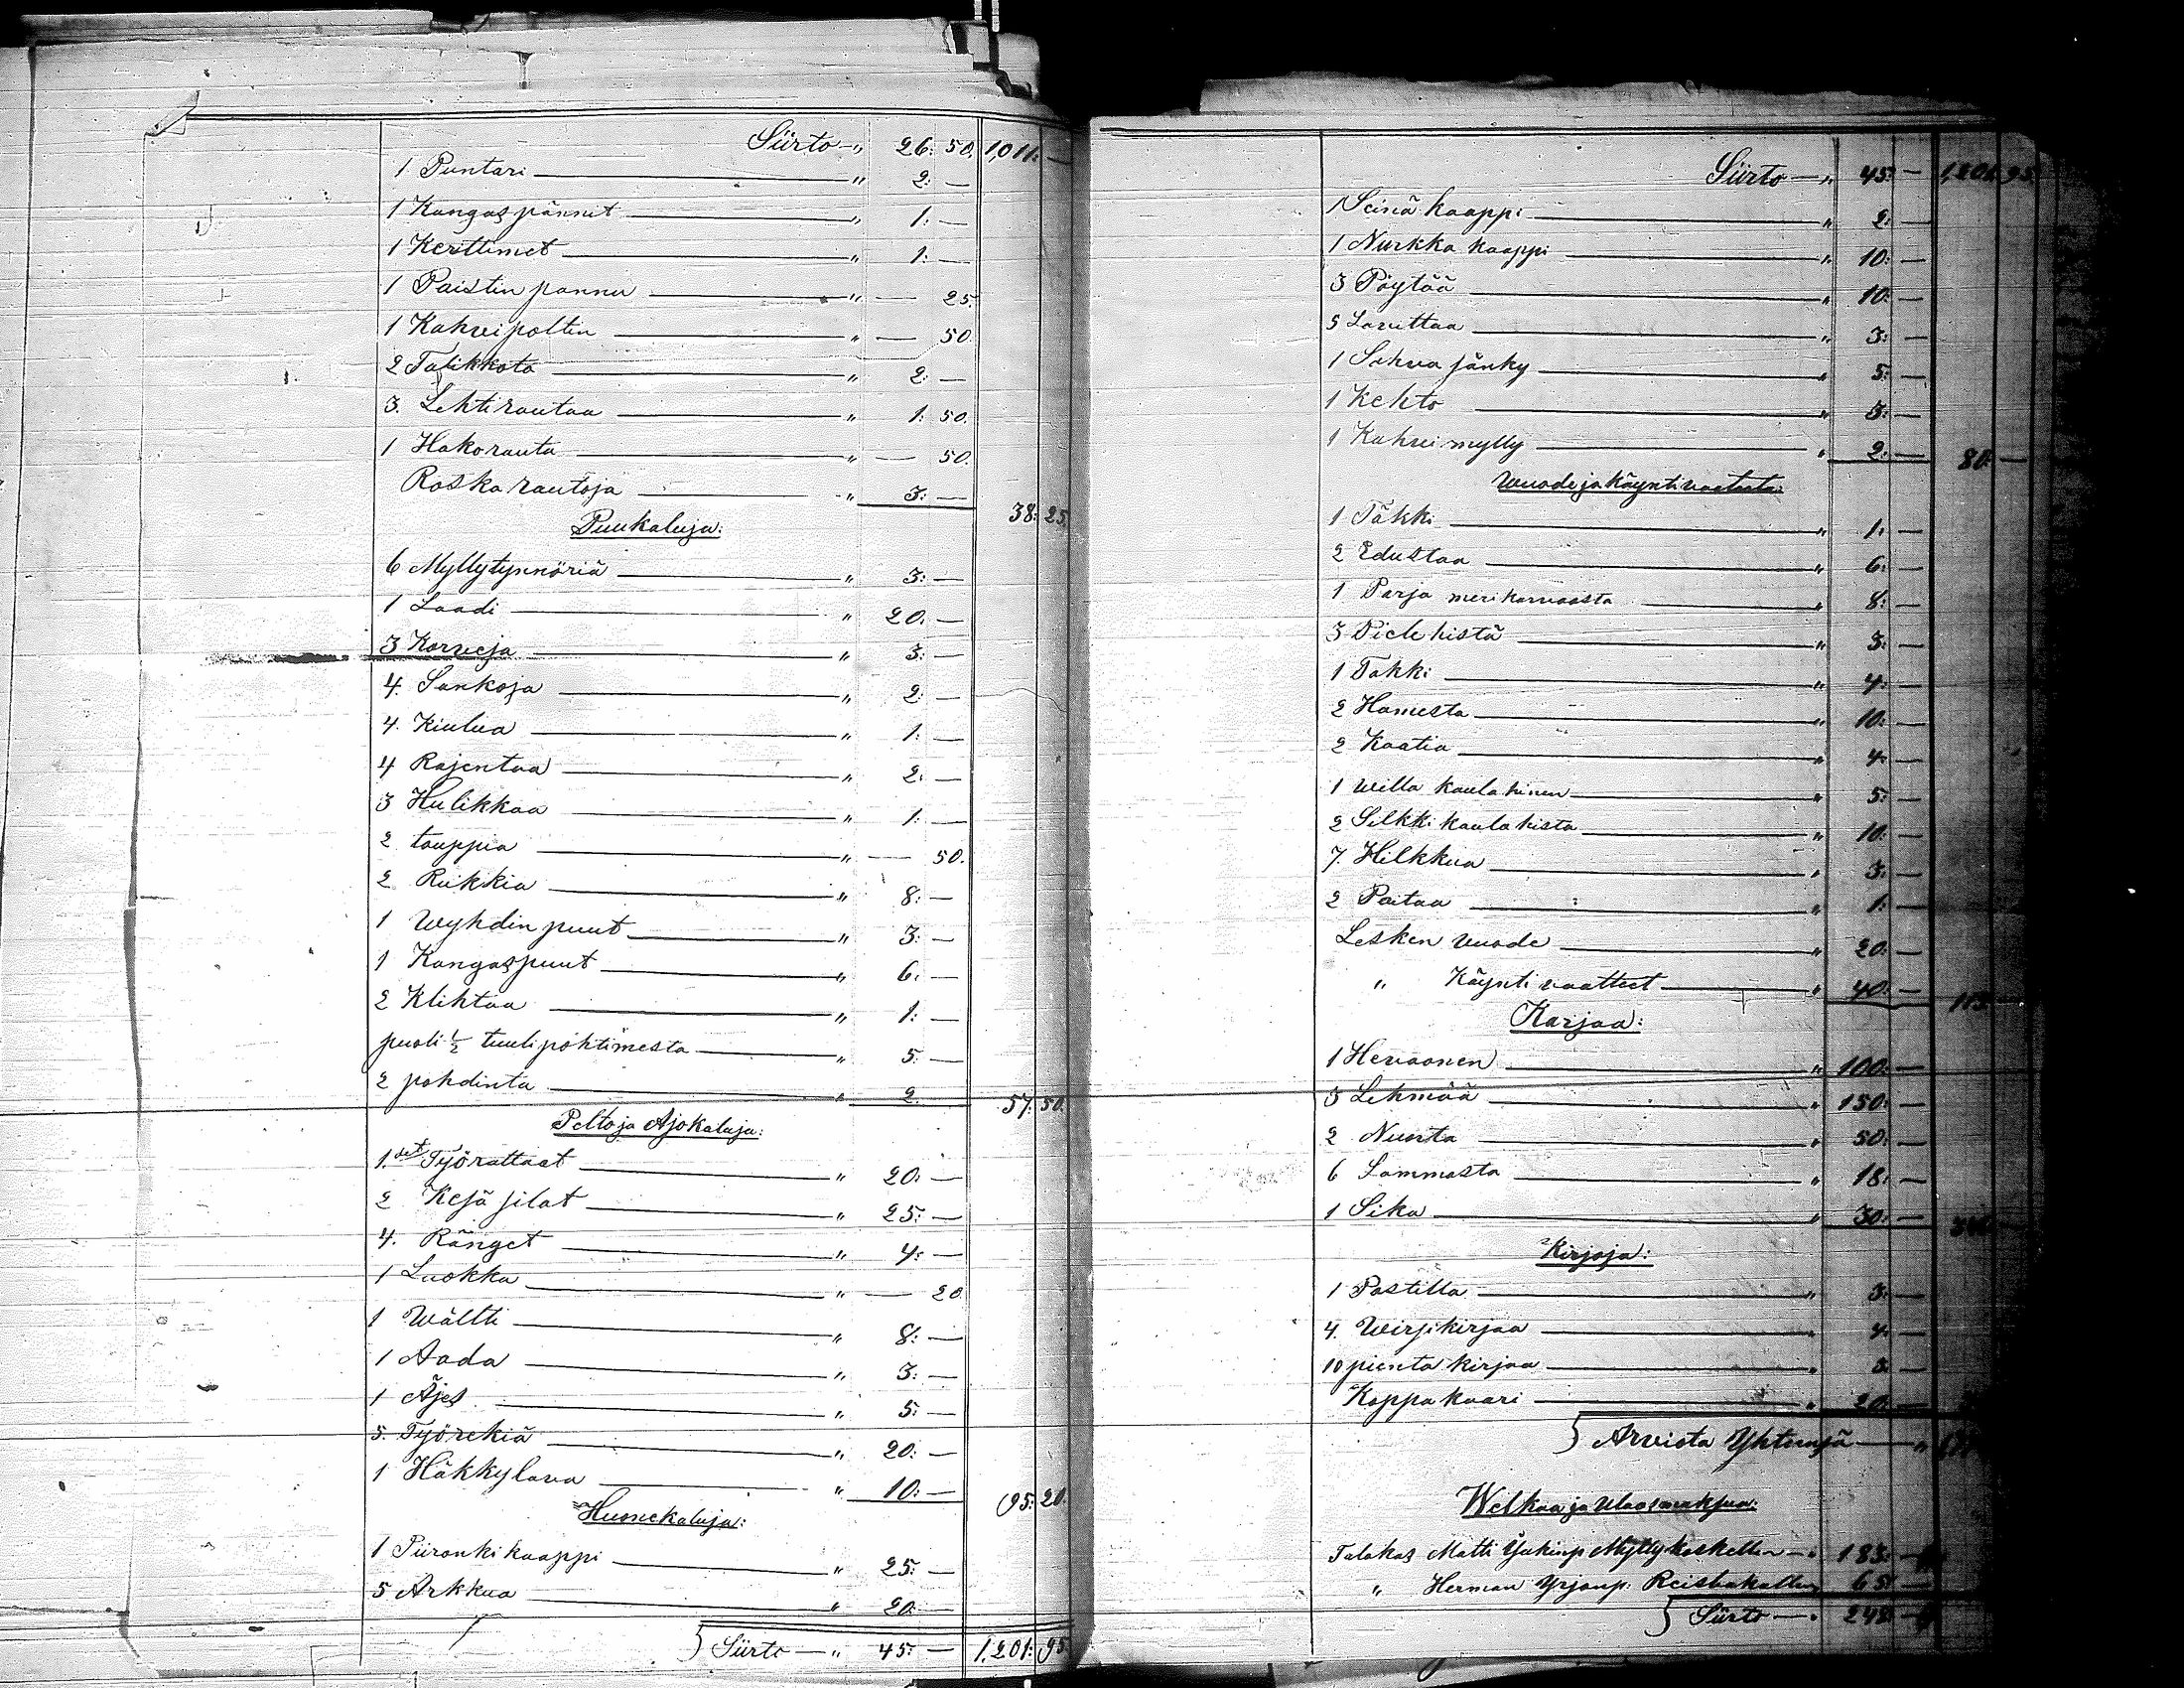 Siirto — " 26: 50. 1,011: —
1 Puntari — " 2: —
1 Kangaspännit — " 1: —
1 Kerittimet — " 1: —
1 Paistin pannu — " — 25.
1 Kahvipoltin — " — 50.
2 Talikkota — " 2: —
3. Lehtirautaa — " 1: 50.
1 Hakorauta — " — 50.
Roska rautoja — " 3: — 38: 25.
Puukaluja:
6 Myllytynnöriä — " 3: —
1 Laadi — " 20: —
3 Korveja — " 3: —
4. Sankoja — " 2: —
4. Kiulua — " 1: —
4 Rajentaa — " 2: —
3 Hulikkaa — " 1: —
2 touppia — " — 50.
2 Rukkia — " 8: —
1 Wyhdin puut — " 3: —
1 Kangaspuut — " 6: —
2 Klihtaa — " 1: —
puoli ½ tuulipohtimesta — " 5: —
2 pohdinta — " 2. 57: 50.
Pelto ja Ajokaluja:
1. set Työrattaat — " 20: —
2 Kesä silat — " 25: —
4. Ränget — " 4: —
1 Luokka — " — 20
1 Wältti — " 8: —
1 Aada — " 3: —
1 Äjes — " 5: —
5. Työrekiä — " 20: —
1 Häkkylava — " 10: — 95: 20.
Huonekaluja:
1 Piironki kaappi — " 25: —
5 Arkkua — " 20: —
Siirto — " 45: — 1,201: 95
Siirto — " 45: — 1,201: 95
1 Seinä kaappi — " 2: —
1 Nurkka kaappi — " 10: —
3 Pöytää — " 10: —
5 Lavittaa — " 3: —
1 Sohva sänky — " 5: —
1 Kehto — " 3: —
1 Kahvimylly — " 2: — 80: —
Vuode ja käyntivaatteita:
1 Täkki — " 1: —
2 Edustaa — " 6: —
1 Parja merikarvaasta — " 8: —
3 Pielehistä — " 3: —
1 Takki — " 4: —
2 Hamesta — " 10: —
2 Kaatia — " 4: —
1 Willa kaulahinen — " 5: —
2 Silkki kaulahista — " 10: —
7. Hilkkua — " 3: —
2 Paitaa — " 1: —
Lesken vuode — " 20: —
" Käynti vaatteet — " 40: — 115
Karjaa:
1 Hevoonen — " 100: —
3 Lehmää — " 150: —
2 Nuorta — " 50: —
6 Lammasta — " 18: —
1 Sika — " 30: —
Kirjoja:
1 Postilla — " 3: —
4. Wirsikirjaa — " 4: —
10 pientä kirjaa — " 3: —
Koppa kaari — " 20: —
Arviota Yhteensä — "
Welkaa ja Ulosmaksua:
Talokas Matti Jaakinp Myllykoskelta — " 183: —
" Herman Yrjönp: 65: —
Siirto — " 248: —